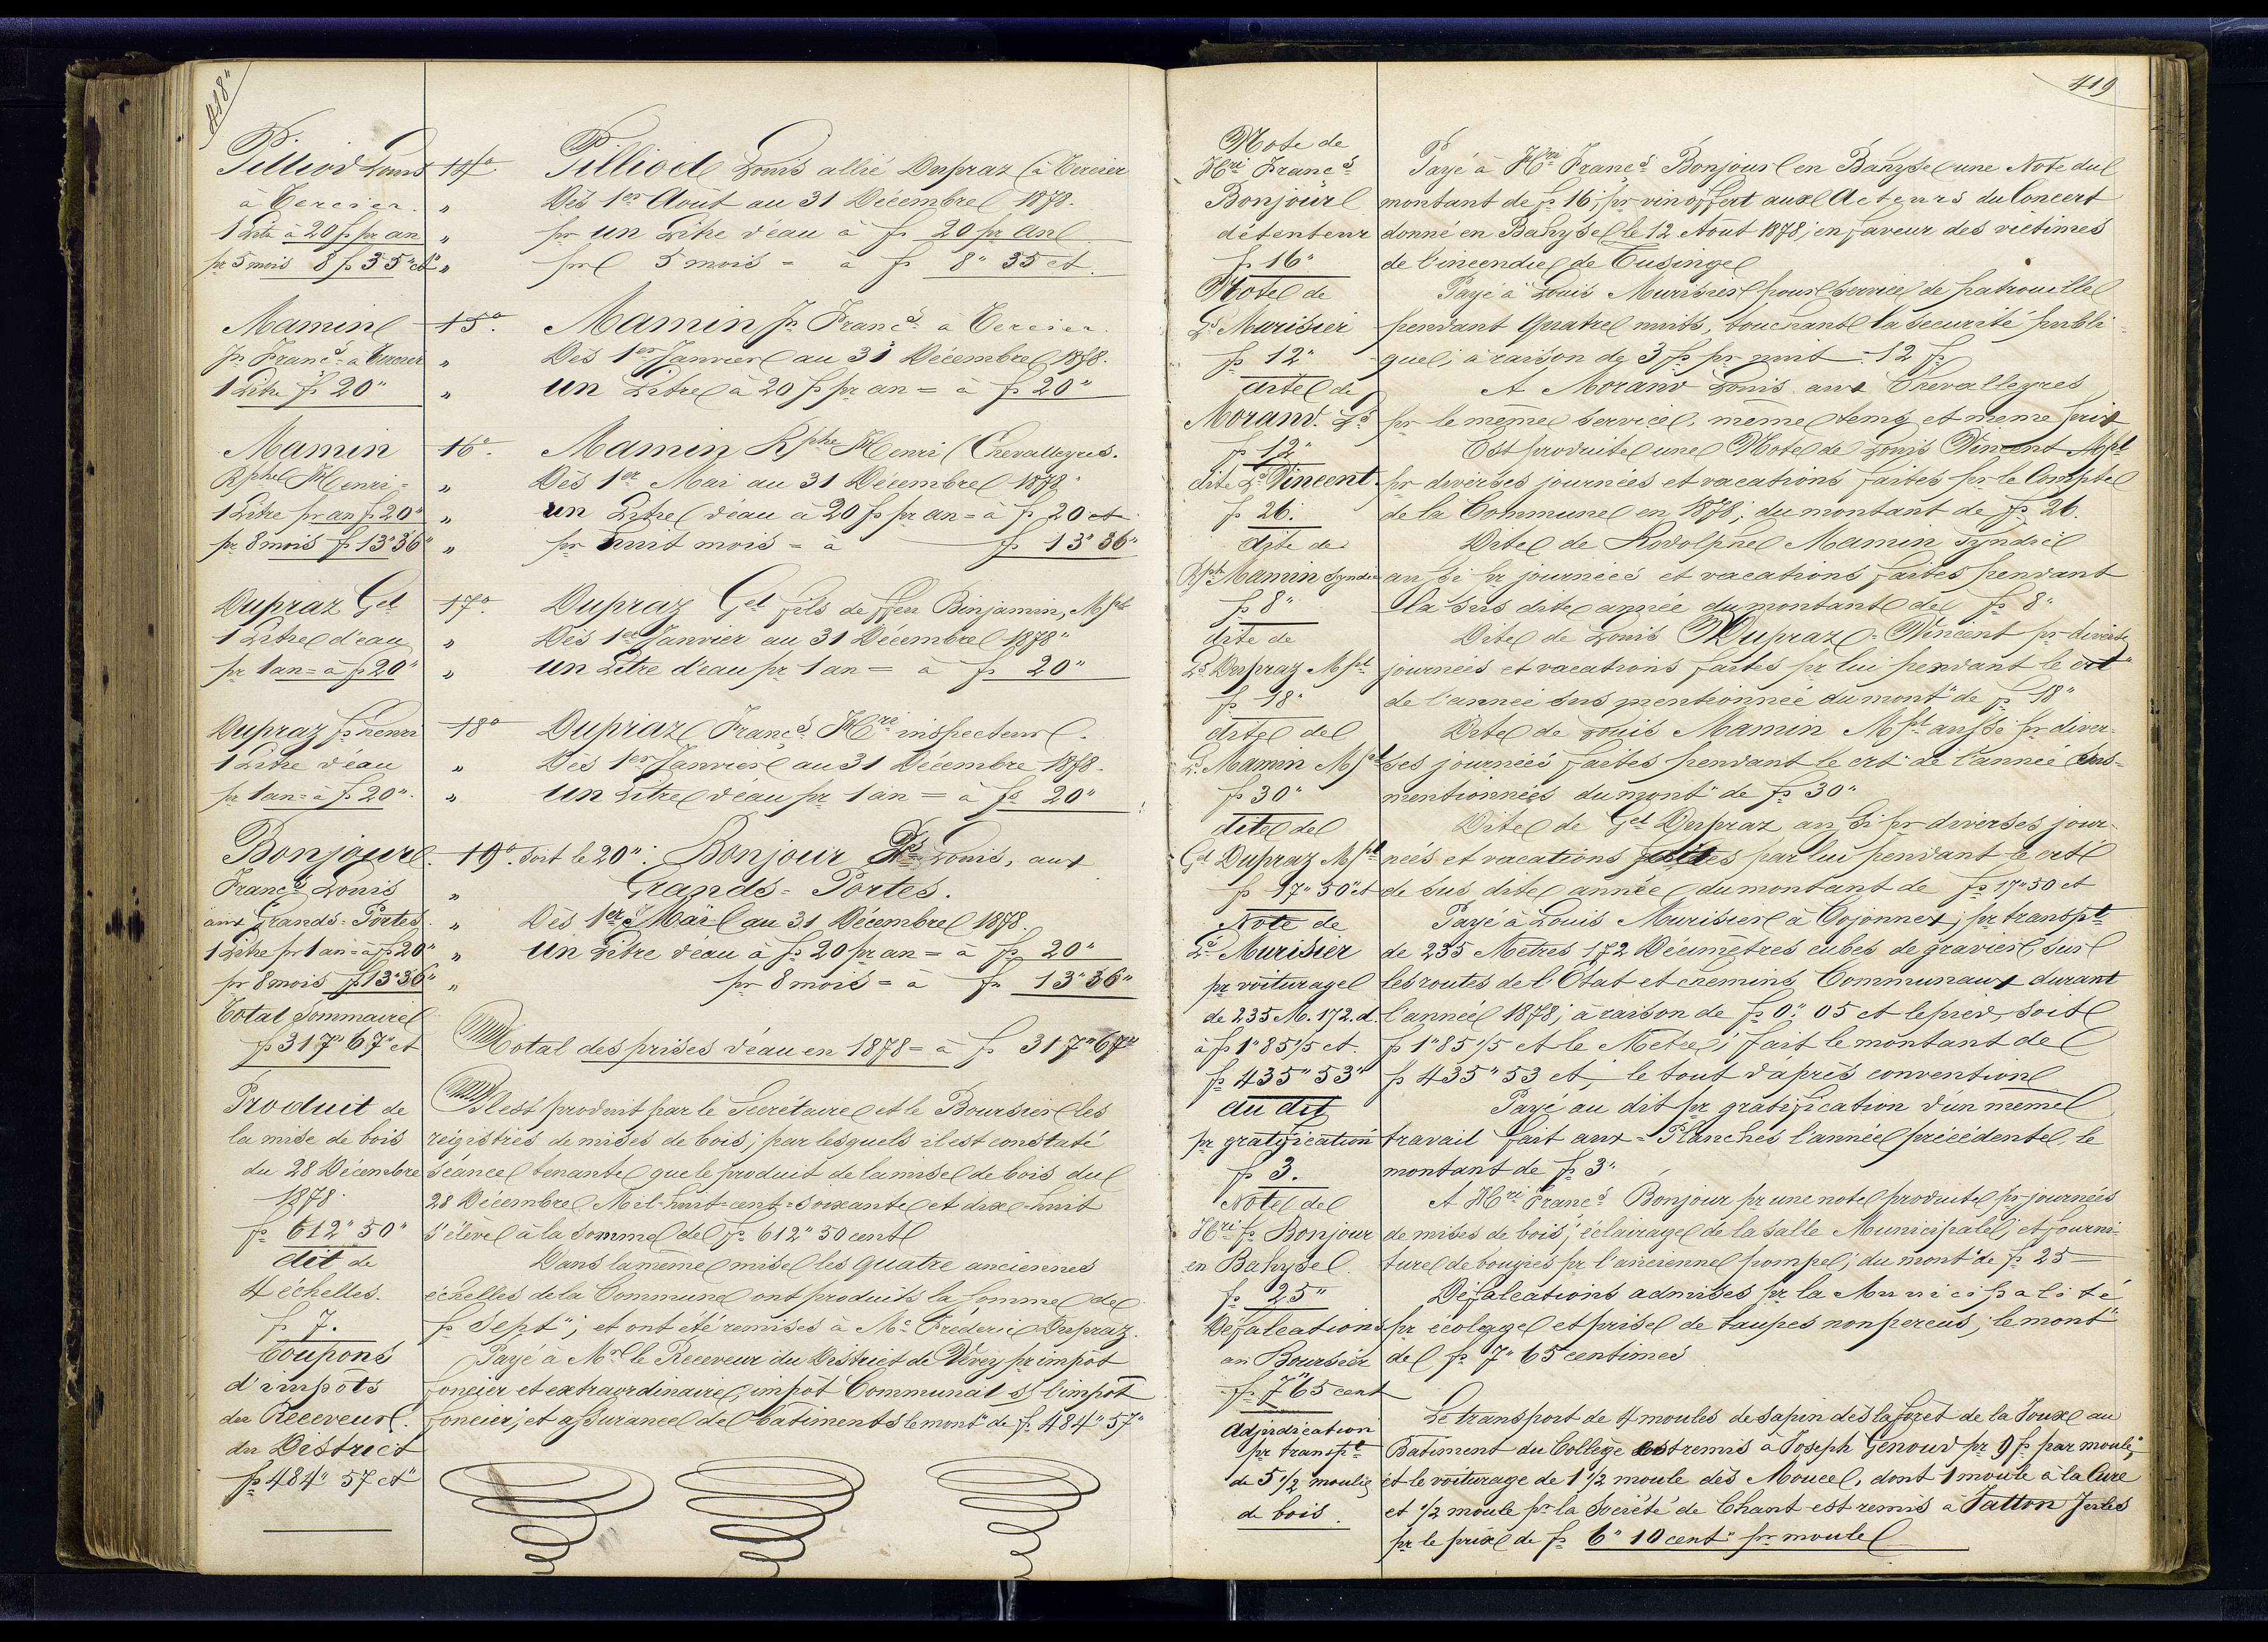 418"
Pilliod Louis
à Vercier.
1 Litre à 20 f pr an
pr 5 mois 8 fs 35" ct"
Mamin
Js Francs à Vercier
1 Litre fs 20"
Mamin
Rphe Henri =
1 Litre pr an fs 20"
pr 8 mois fs 13" 36"
Dupraz Gel
1 Litre d'eau
pr 1 an = à fs 20"
Dupraz fs henri
1 Litre d'eau
pr 1 an = à fs 20"
Bonjour
Francs Louis
aux Grands = Portes.
1 Litre pr 1 an = à fs 20"
pr 8 mois fs 13" 36"
Total Sommaire
fs 317" 67" ct
Produit de
la mise de bois
du 28 Décembre
1878.
fs 612" 50"
dit de
4 échelles.
fs 7.
Coupons
d'impots
du Receveur.
du District
fs 484" 57 ct"
14° Pilliod Louis allié Dupraz (à Vercier
" Dès 1er Août au 31 Décembre 1878.
" pr un Litre d'eau à fs 20 pr an
" pr 5 mois = à fs 8" 35 ct.
15°. Mamin Js Francs à Vercier.
" Dès 1er Janvier au 31 Décembre 1878.
" un Litre à 20 fs pr an = à fs 20"
16°. Mamin Rphe Henri (Chevalleyres.
" Dès 1er Mai au 31 Décembre 1878"
" un Litre d'eau à 20 fs pr an = à fs 20 ct
" pr huit mois = à fs 13" 36"
17°. Dupraz Gel fils de ffeu Binjamin, Mpl
" Dès 1er Janvier au 31 Décembre 1878"
" un Litre d'eau pr 1 an = à fs 20"
18° Dupraz Francs Hri inspecteur.
" Dès 1er Janvier au 31 Décembre 1878.
" un Litre d'eau pr 1 an = à fs 20"
19°. Soit le 20": Bonjour Fs Louis, aux
" Grands = Portes.
" Dès 1er Mai au 31 Décembre 1878.
" un Litre d'eau à fs 20 pr an = à fs 20"
" pr 8 mois = à fs 13" 36"
Total des prises d'eau en 1878 = à fs 317" 67"
Il est produit par le Secrétaire et le Boursier les
régistres de mises de bois; par lesquels il est constaté
séance tenante que le produit de la mise de bois du
28 Décembre Mil-huit-cent-soixante et dixe-huit
s'élève à la somme de fs 612" 50 cent
Dans la même mise les quatre anciennes
échelles de la Commune ont produits la somme de
fs Sept"; et ont été remises à Mr Fréderic Dupraz.
Payé à Mr le Receveur du District de Vevey pr impot
foncier et extraordinaire, impôt Communal s/ l'impôt
foncier; et assurance de batiments le mont" de fs 484" 57"
419
Note de
Hri Francs
Bonjour
détenteur
fs 16"
Note de
Ls Murisier
fs 12"
dite de
Morand. Ls
fs 12"
dite Ls Vincent
fs 26.
dite de
Rph Mamin Syndic
fs 8"
dite de
Ls Dupraz Mpl
fs 18"
dite de
L. Mamin Mpl
fs 30"
dite de
Gel Dupraz Mpl
fs 17" 50 ct
Note de
Ls Murisier
pr voiturage
de 235 M. 172. d.
à fs 1" 85 1/5 ct.
fs 435" 53"
du dit
pr gratification
fs 3.
Note de
Hri fs Bonjour
en Bahyse
fs 25"
Défalcations
au Boursier
fs 7" 65 cent
Adjudication
pr transpt
de 5 1/2 moules
de bois.
Payé à Hri Francs Bonjour en Bahyse une Note du
montant de fs 16; pr vin offert aux Acteurs du Concert
donné en Bahyse le 12 Août 1878; en faveur des victimes
de l'incendie de Tusinge
Payé à Louis Murisier pour service de patrouille
pendant quatre nuits, touchant la securité publi =
que; à raison de 3 fs pr nuit = 12 fs
A Morand Louis aux Chevalleyres
pr le même service, même temp et même prix
Est produite une Note de Louis Vincent Mpl
pr diverses journées et vacations faites pr le Compte
de la Commune en 1878; du montant de fs 26.
Dite de Rodolphe Mamin Syndic
aussi pr journées et vacations faites pendant
la sus dite année du montant de fs 8"
Dite de Louis Dupraz = Vincent pr diverses
journées et vacations faites pr lui pendant le crt
de l'année sus mentionnée du mont" de fs 18"
Dite de Louis Mamin Mpl aussi pr diver-
ses journées faites pendant le crt de l'année sus-
mentionnées du mont" de fs 30"
Dite de Gel Dupraz aussi pr diverses jour-
nées et vacations faites par lui pendant le crt
de sus dite année du montant de fs 17" 50 ct
Payé à Louis Murisier à Cojonnex; pr transpt
de 235 Mètres 172 Décimètres cubes de gravier, sur
les routes de l'Etat et chemins Communaux durant
l'année 1878; à raison de fs 0". 05 ct le pied, soit
fs 1" 85 1/5 ct le Mètre; fait le montant de
fs 435" 53 ct, le tout d'après convention
Payé au dit pr gratification d'un même
travail fait aux = Planches l'année précédente, le
montant de fs 3"
A Hri Francs Bonjour pr une note produite pr journées
de mises de bois; éclairage de la salle Municipale; et fourni-
ture de bougies pr l'ancienne pompe; du mont" de fs 25 —
Défalcations admises pr la Municipalité
pr écolage et prise de taupes non percus; le mont"
de fs 7" 65 centimes
Le transport de 4 moules de sapin dès la foret de la Joux au
Batiment du Collège est remis à Joseph Genoud pr 9 fs par moule;
et le voiturage de 1 1/2 moule dès Moucel, dont 1 moule à la Cure
et 1/2 moule pr la Société de Chant est remis à Tatton Jules
pr le prix de fs 6" 10 cent" pr moule